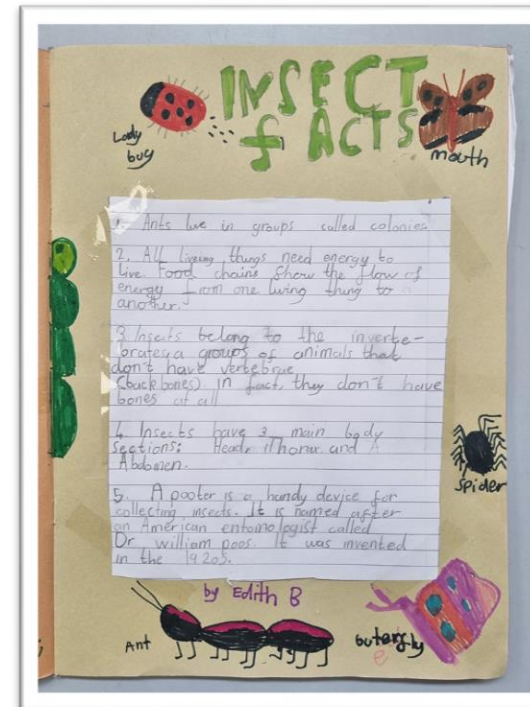 INSECT
fACTS
Lady
bug
mouth
1. Ants live in groups called colonies
2. All liveing things need energy to
live. Food chains show the flow of
energy from one living thing to
another.
3. Insects belong to the inverte-
brates, a groups of animals that
don't have vertebrae
(backbones). In fact, they don't have
bones at all
4. Insects have 3 main body
sections: Head, Thorax and A
Abdomen.
5. A pooter is a handy device for
collecting insects. It is named after
an American entomologist called
Dr william poos. It was invented
in the 1920s.
spider
by Edith B
Ant
buterfly
e